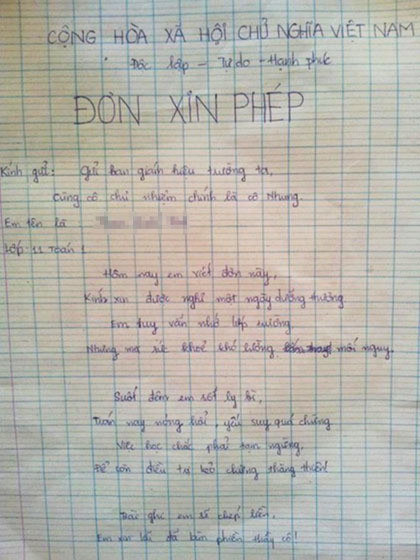 CỘNG HÒA XÃ HỘI CHỦ NGHĨA VIỆT NAM
Độc lập - Tự do - Hạnh phúc
ĐƠN XIN PHÉP
Kính gửi: Gửi ban giám hiệu trường ta,
Cùng cô chủ nhiệm chính là cô Nhung.
Em tên là
Lớp: 11 Toán 1
Hôm nay em viết đơn này,
Kính xin được nghỉ một ngày dưỡng thương
Em tuy vẫn nhớ lớp trường,
Nhưng mà sức khoẻ khó lường, mối nguy.
Suốt đêm em sốt ly bì,
Trán nay nóng hổi, yếu suy quá chừng
Việc học chắc phải tạm ngừng,
Để còn điều trị kẻo chừng thăng thiên!
Bài ghi em sẽ chép liền,
Em xin lỗi đã làm phiền thầy cô!